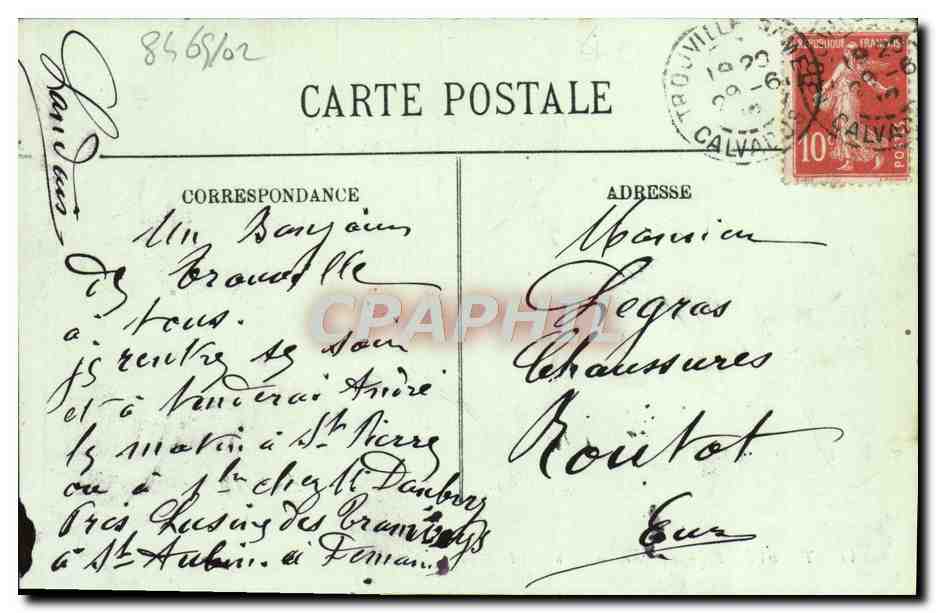 8469/02
CARTE POSTALE
TROUVILLE S MER
19 20
29 -6
CALVADOS
REPUBLIQUE FRANÇAISE
10c
POSTES
CORRESPONDANCE
ADRESSE
Un Bonjour
de Trouville
à tous.
je rentre ce soir
et attenderai André
le matin à St Pierre
ou à 1h chez Mr
Près Lusine des Tramways
à St Aubin. à Demain
Monsieur
Legras
Chaussures
Routot
Eure
CPAPHIL